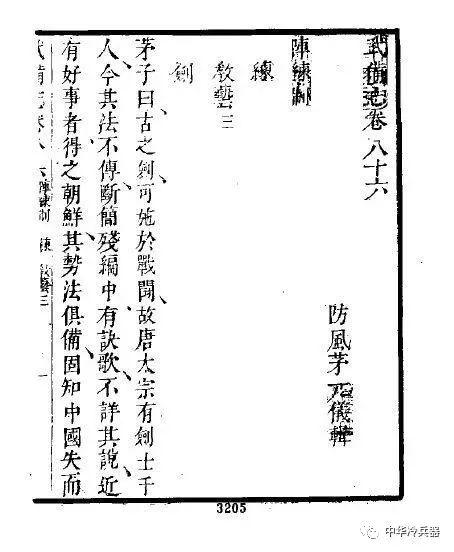 武備志卷八十六
防風茅元儀輯
陣練制
練
教藝三
劍
茅子曰古之劍可施於戰鬭故唐太宗有劍士千
人今其法不傳斷簡殘編中有訣歌不詳其說近
有好事者得之朝鮮其勢法俱備固知中國失而
武備志卷八十六 陣練制 練 教藝三 一
3205
中华冷兵器